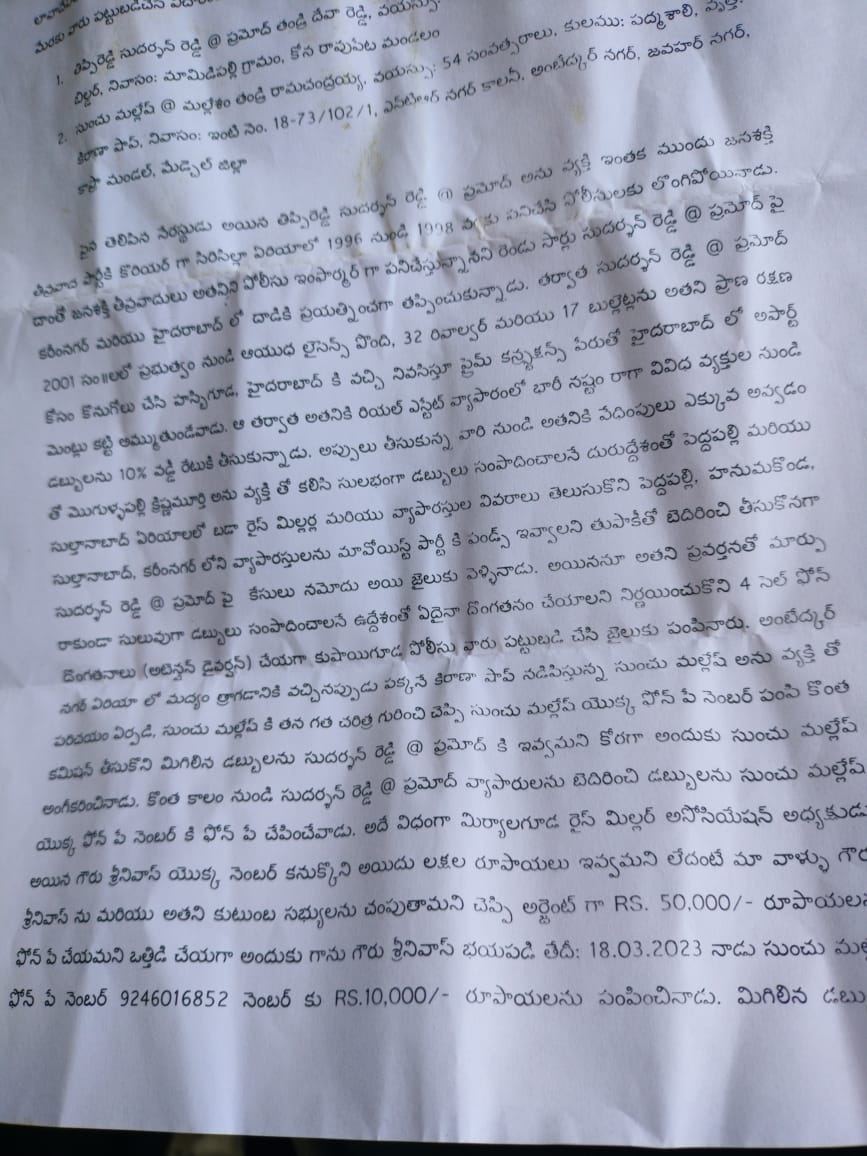 మేరకు వారు పట్టుబడిచేసి
1. తిప్పిరెడ్డి సుదర్శన్ రెడ్డి @ ప్రమోద్ తండ్రి దేవా రెడ్డి, వయస్సు:
బిల్డర్, నివాసం: మామిడిపల్లి గ్రామం, కోన రావుపేట మండలం
2. సుంచు మల్లేష్ @ మల్లేశం తండ్రి రామచంద్రయ్య, వయస్సు: 54 సంవత్సరాలు, కులము: పద్మశాలి, వృత్తి:
కిరాణా షాప్, నివాసం: ఇంటి నెం. 18-73/102/1, ఎన్‌టిఆర్ నగర్ కాలనీ, అంబేద్కర్ నగర్, జవహర్ నగర్,
కాప్రా మండల్, మేడ్చల్ జిల్లా
పైన తెలిపిన నేరస్థుడు అయిన తిప్పిరెడ్డి సుదర్శన్ రెడ్డి @ ప్రమోద్ అను వ్యక్తి ఇంతక ముందు జనశక్తి
తీవ్రవాద పార్టీకి కొరియర్ గా సిరిసిల్లా ఏరియాలో 1996 నుండి 1998 వరకు పనిచేసి పోలీసులకు లొంగిపోయినాడు.
దాంతో జనశక్తి తీవ్రవాదులు అతన్ని పోలీసు ఇంఫార్మర్ గా పనిచేస్తున్నాడని రెండు సార్లు సుదర్శన్ రెడ్డి @ ప్రమోద్ పై
కరీంనగర్ మరియు హైదరాబాద్ లో దాడికి ప్రయత్నించగా తప్పించుకున్నాడు. తర్వాత సుదర్శన్ రెడ్డి @ ప్రమోద్
2001 సం॥లలో ప్రభుత్వం నుండి ఆయుధ లైసెన్స్ పొంది, 32 రివాల్వర్ మరియు 17 బుల్లెట్లను అతని ప్రాణ రక్షణ
కోసం కొనుగోలు చేసి హబ్సిగూడ, హైదరాబాద్ కి వచ్చి నివసిస్తూ ప్రైమ్ కన్స్ట్రక్షన్స్ పేరుతో హైదరాబాద్ లో అపార్ట్
మెంట్లు కట్టి అమ్ముతుండేవాడు. ఆ తర్వాత అతనికి రియల్ ఎస్టేట్ వ్యాపారంలో భారీ నష్టం రాగా వివిధ వ్యక్తుల నుండి
డబ్బులను 10% వడ్డీ రేటుకి తీసుకున్నాడు. అప్పులు తీసుకున్న వారి నుండి అతనికి వేదింపులు ఎక్కువ అవ్వడం
తో మొగుళ్ళపల్లి క్రిష్ణమూర్తి అను వ్యక్తి తో కలిసి సులభంగా డబ్బులు సంపాదించాలనే దురుద్దేశంతో పెద్దపల్లి మరియు
సుల్తానాబాద్ ఏరియాలలో బడా రైస్ మిల్లర్ల మరియు వ్యాపారస్తుల వివరాలు తెలుసుకొని పెద్దపల్లి, హనుమకొండ,
సుల్తానాబాద్, కరీంనగర్ లోని వ్యాపారస్తులను మావోయిస్ట్ పార్టీ కి ఫండ్స్ ఇవ్వాలని తుపాకీతో బెదిరించి తీసుకొనగా
సుదర్శన్ రెడ్డి @ ప్రమోద్ పై కేసులు నమోదు అయి జైలుకు వెళ్ళినాడు. అయిననూ అతని ప్రవర్తనతో మార్పు
రాకుండా సులువుగా డబ్బులు సంపాదించాలనే ఉద్దేశంతో ఏదైనా దొంగతనం చేయాలని నిర్ణయించుకొని 4 సెల్ ఫోన్
దొంగతనాలు (అటెన్షన్ డైవర్షన్) చేయగా కుషాయిగూడ పోలీసు వారు పట్టుబడి చేసి జైలుకు పంపినారు. అంబేద్కర్
నగర్ ఏరియా లో మద్యం త్రాగడానికి వచ్చినప్పుడు పక్కనే కిరాణా షాప్ నడిపిస్తున్న సుంచు మల్లేష్ అను వ్యక్తి తో
పరిచయం ఏర్పడి, సుంచు మల్లేష్ కి తన గత చరిత్ర గురించి చెప్పి సుంచు మల్లేష్ యొక్క ఫోన్ పే నెంబర్ పంపి కొంత
కమిషన్ తీసుకొని మిగిలిన డబ్బులను సుదర్శన్ రెడ్డి @ ప్రమోద్ కి ఇవ్వమని కోరగా అందుకు సుంచు మల్లేష్
అంగీకరించినాడు. కొంత కాలం నుండి సుదర్శన్ రెడ్డి @ ప్రమోద్ వ్యాపారులను బెదిరించి డబ్బులను సుంచు మల్లేష్
యొక్క ఫోన్ పే నెంబర్ కి ఫోన్ పే చేపించేవాడు. అదే విధంగా మిర్యాలగూడ రైస్ మిల్లర్ అసోసియేషన్ అధ్యక్షుడు
అయిన గౌరు శ్రీనివాస్ యొక్క నెంబర్ కనుక్కొని అయిదు లక్షల రూపాయలు ఇవ్వమని లేదంటే మా వాళ్ళు గౌర
శ్రీనివాస్ ను మరియు అతని కుటుంబ సభ్యులను చంపుతామని చెప్పి అర్జెంట్ గా RS. 50,000/- రూపాయల
ఫోన్ పే చేయమని ఒత్తిడి చేయగా అందుకు గాను గౌరు శ్రీనివాస్ భయపడి తేదీ: 18.03.2023 నాడు సుంచు మల్లే
ఫోన్ పే నెంబర్ 9246016852 నెంబర్ కు RS.10,000/- రూపాయలను పంపించినాడు. మిగిలిన డబు